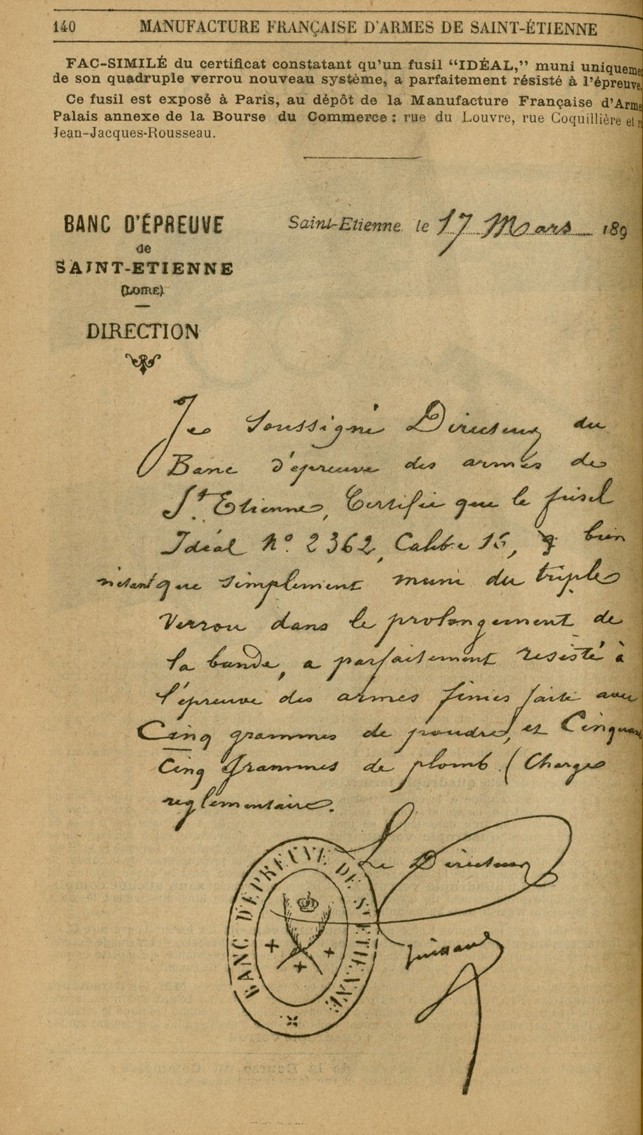 140 MANUFACTURE FRANÇAISE D'ARMES DE SAINT-ÉTIENNE
FAC-SIMILÉ du certificat constatant qu'un fusil “IDÉAL,” muni uniqueme
de son quadruple verrou nouveau système, a parfaitement résisté à l'épreuve.
Ce fusil est exposé à Paris, au dépôt de la Manufacture Française d'Arme
Palais annexe de la Bourse du Commerce : rue du Louvre, rue Coquillière et r
Jean-Jacques-Rousseau.
BANC D'ÉPREUVE
de
SAINT-ETIENNE
(LOIRE)
DIRECTION
Saint-Etienne le 17 Mars 189
Je soussigné Directeur du
Banc d'épreuve des armes de
St Etienne, Certifie que le fusil
Idéal No 2362, Calibre 16, bien
n'étant que simplement muni du triple
Verrou dans le prolongement de
la bande, a parfaitement resisté à
l'épreuve des armes finies faite avec
Cinq grammes de poudre, et Cinquan
Cinq grammes de plomb (Charge
reglementaire.
Le Directeur
BANC D'EPREUVE DE ST ETIENNE